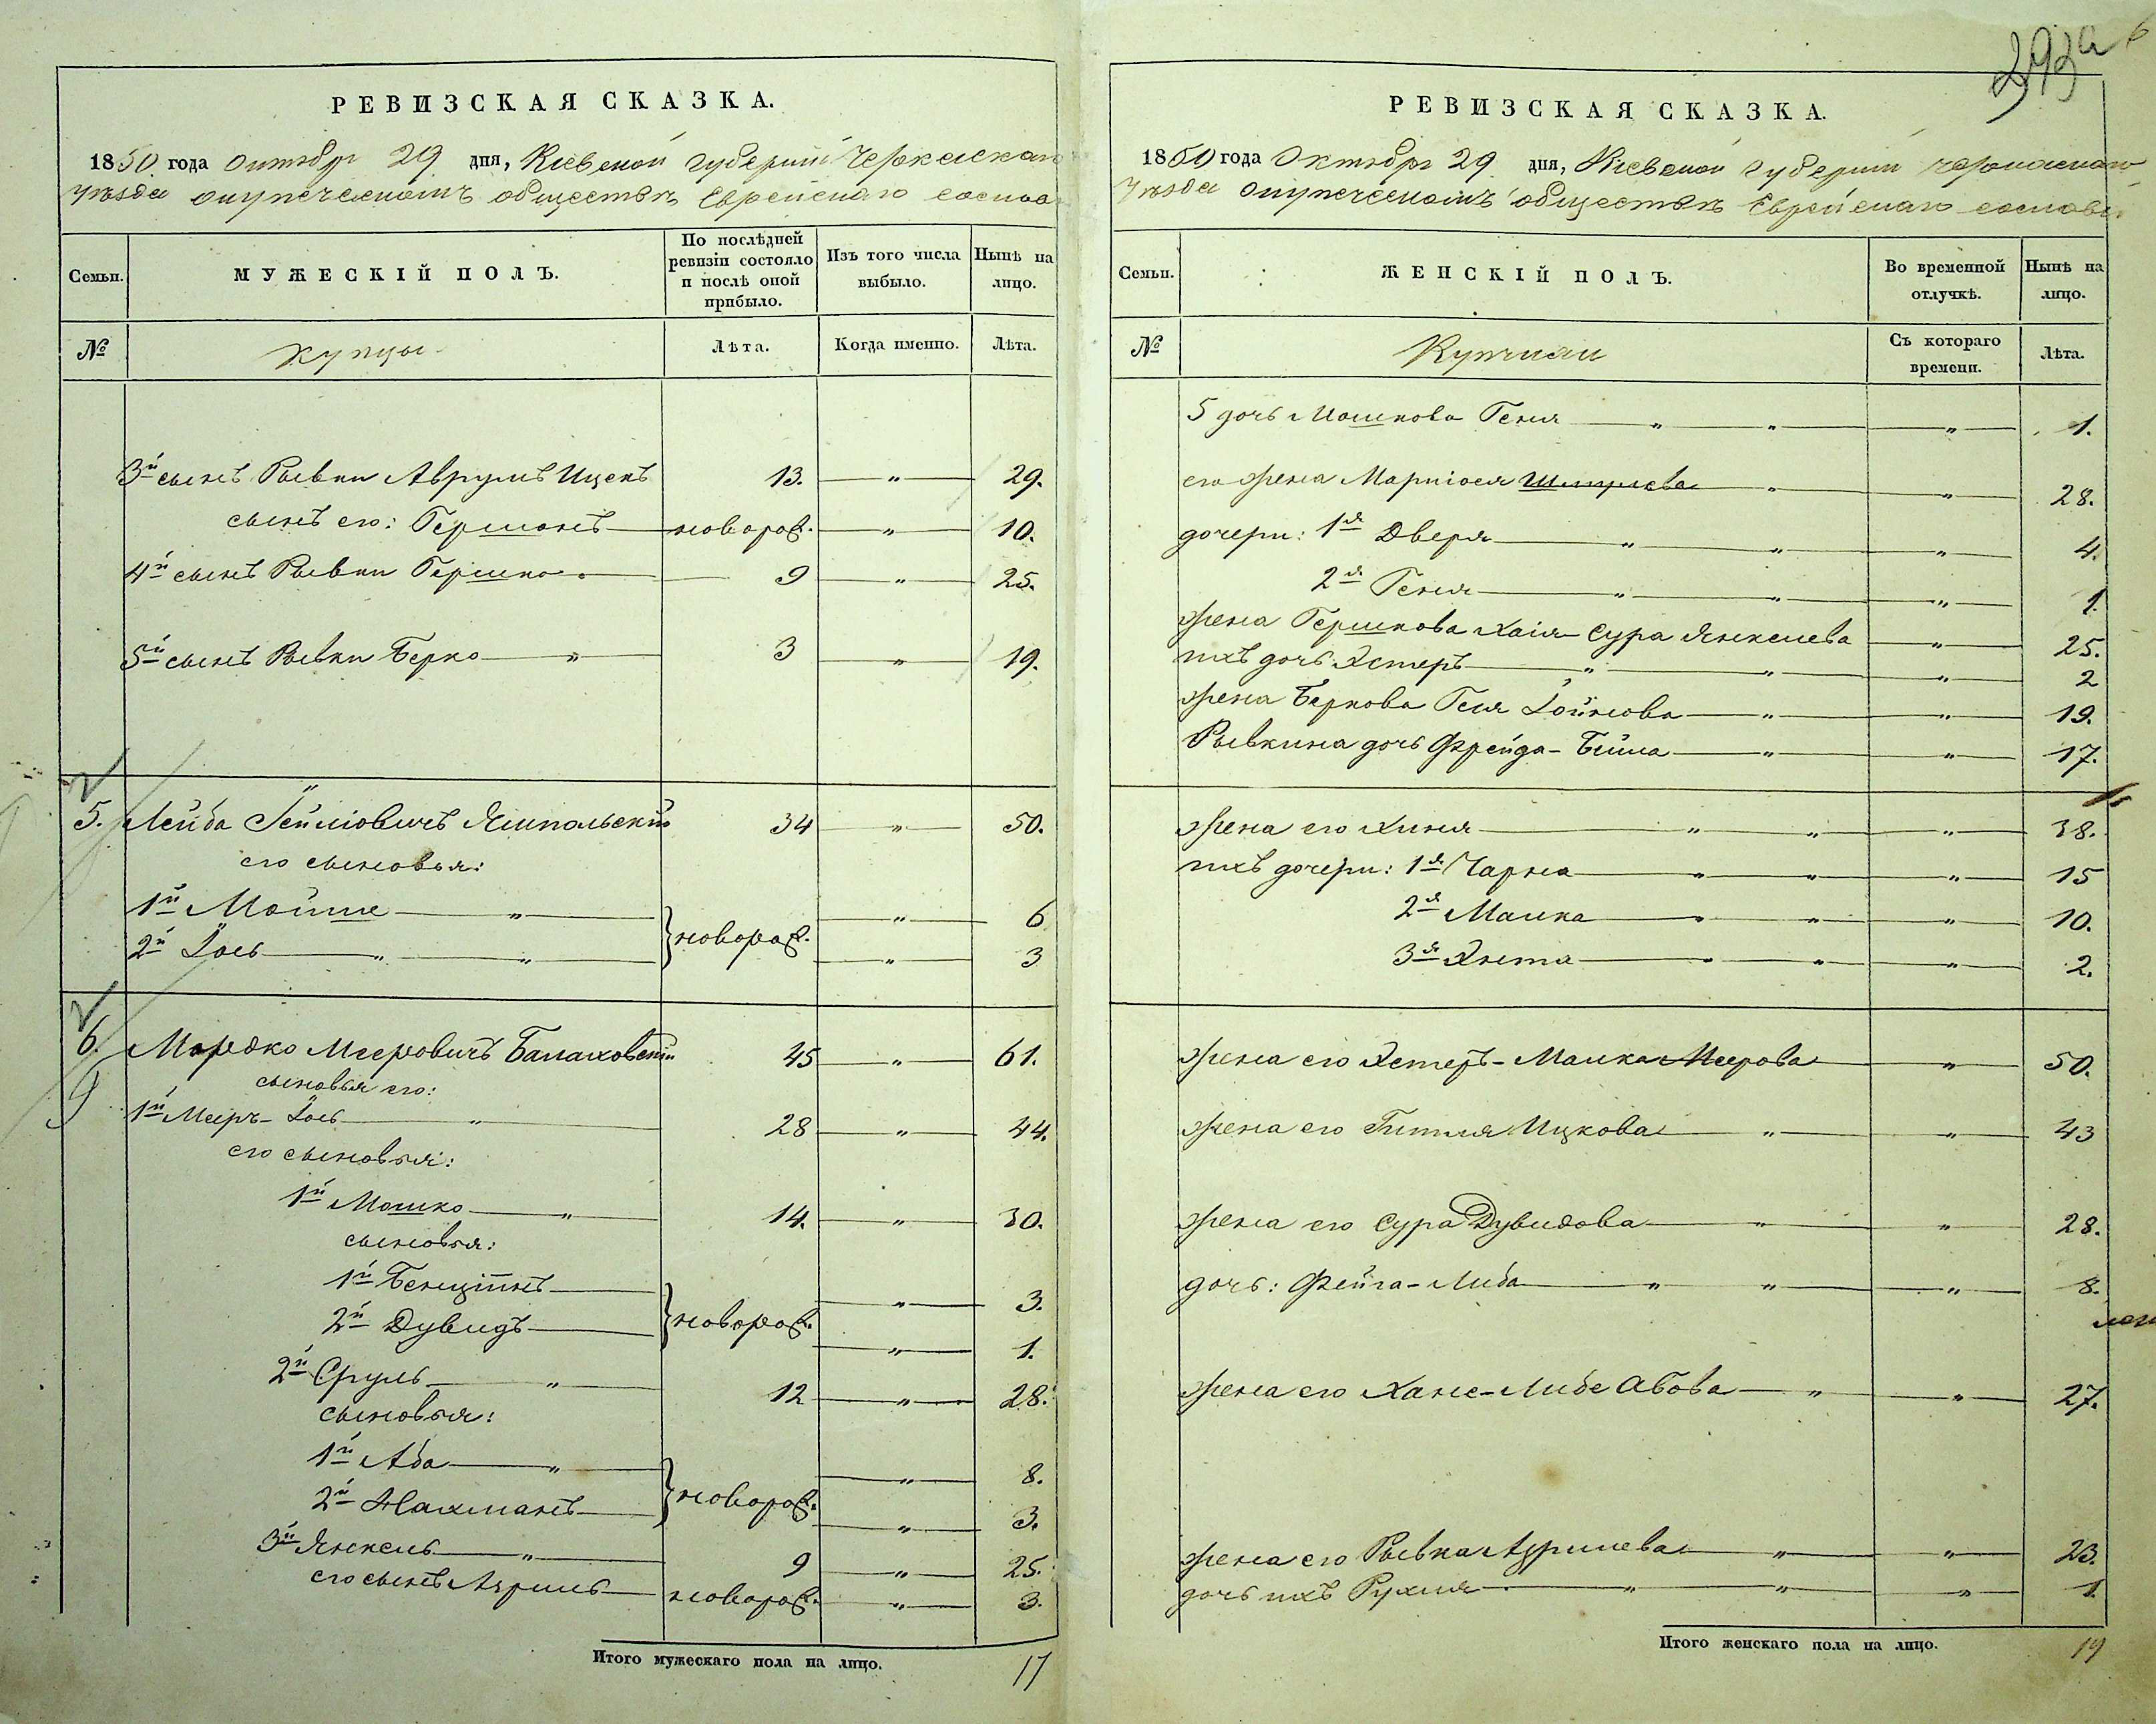 293а
РЕВИЗСКАЯ СКАЗКА.
1850 года Октября 29 дня, Киевской Губернии Черкаскаго
уѣзда о купеческомъ обществѣ Еврейскаго
Семьи.
МУЖЕСКІЙ ПОЛЪ.
По послѣдней ревизіи состояло и послѣ оной прибыло.
Изъ того числа выбыло.
Нынѣ на лицо.
№
Купцы
Лѣта.
Когда именно.
Лѣта.
3й сынъ Рывки Аврумъ Ицекъ 13. " 29.
сынъ его: Гершонъ новорож. " 10.
4й сынъ Рывки Гершко 9 " 25.
5й сынъ Рывки Берко " 3 " 19.
5. Лейба Ямпольскій 34 " 50.
его сыновья:
1й Мойше " новорож. " 6
2й Iось " " " 3
6. Мордко Мееровичъ Балаховскій 45 " 61.
9
сыновья его:
1й Мееръ-Iось " 28 " 44.
его сыновья:
1й Мошко " 14. " 30.
сыновья:
1й Бенціѝнъ новорож. " 3.
2й Дувидъ " 1.
2й Сруль " 12 " 28.
сыновья:
1й Аба " новорож. " 8.
2й Нахманъ " 3.
3й Янкель " 9 " 25.
его сынъ Азриль новорож. " 3.
Итого мужескаго пола на лицо. 17
РЕВИЗСКАЯ СКАЗКА.
1850 года Октября 29 дня, Киевской Губернии Черкаскаго
уѣзда о купеческомъ обществѣ Еврейскаго сословія
Семьи.
ЖЕНСКІЙ ПОЛЪ.
Во временной отлучкѣ.
Нынѣ на лицо.
№
Купчихи
Съ котораго времени.
Лѣта.
5 дочь Мошкова Геня " " " 1.
его жена Маріяся Шмулева " " 28.
дочери: 1я Двера " " " 4.
2я Геня " " " 1.
жена Гершкова Хаія-Сура Янкелева " 25.
ихъ дочь Эстеръ " " " 2
жена Беркова Геня Iойнова " " 19.
Рывкина дочь Фрейда-Бейла " " 17.
жена его Хиня " " " 38.
ихъ дочери: 1я Чарна " " " 15
2я Малка " " " 10.
3я Энта " " " 2.
жена его Эстеръ-Малка Меерова " 50.
жена его Гитля Ицкова " " 43
жена его Сура Дувидова " " 28.
дочь: Фейга-Либа " " " 8.
жена его Хане-Либе Абова " " 27.
жена его Рывка Азрилева " " 23.
дочь ихъ Рухля " " " 1.
Итого женскаго пола на лицо. 19